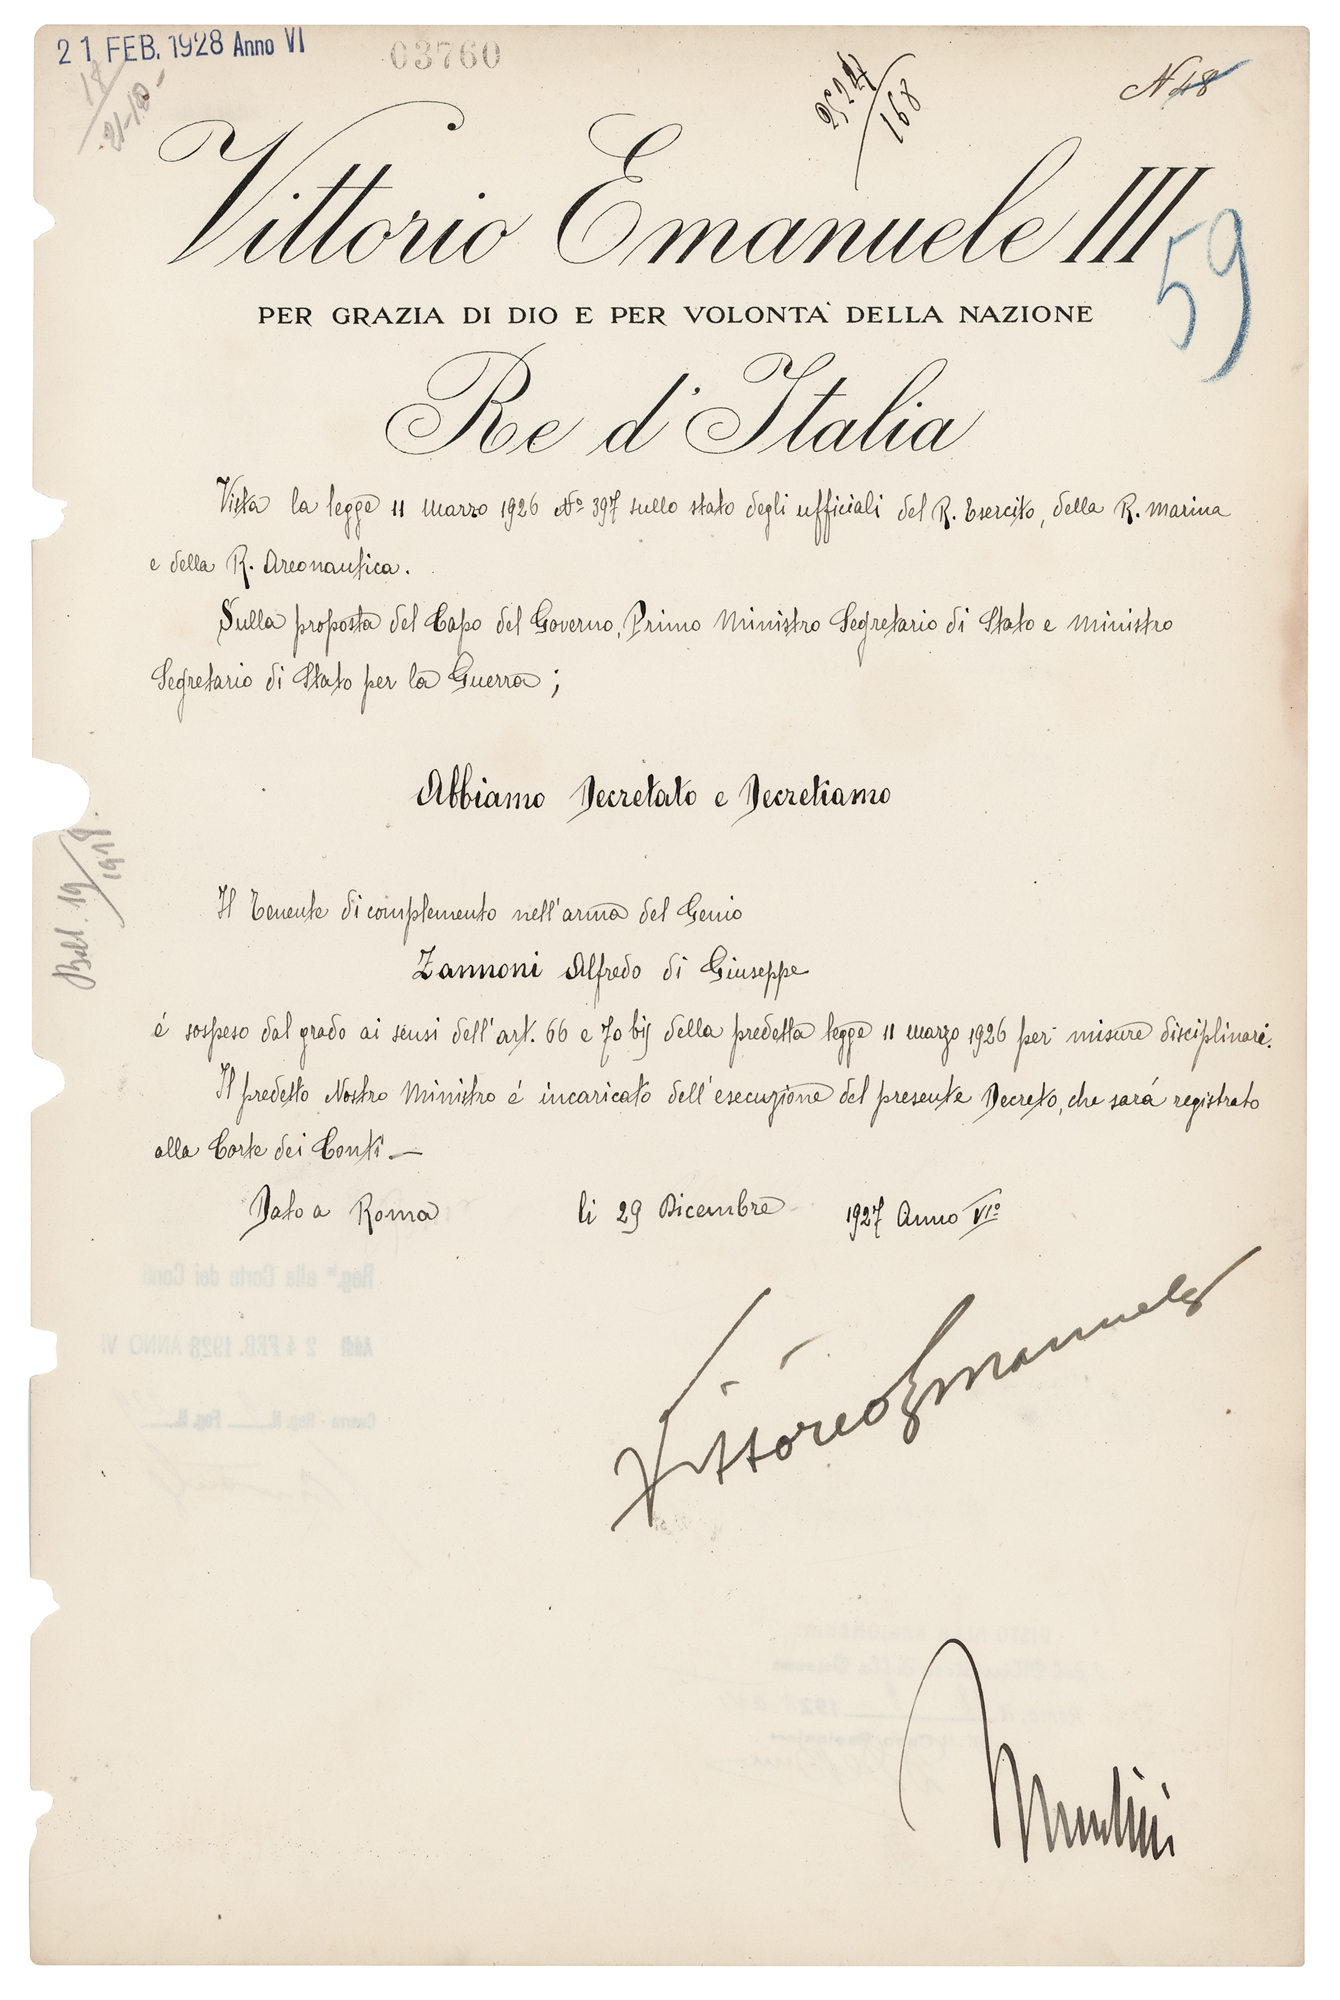 21 FEB. 1928 Anno VI
03760
2524/168
N 48
Vittorio Emanuele III
59
PER GRAZIA DI DIO E PER VOLONTA' DELLA NAZIONE
Re d'Italia
Vista la legge 11 marzo 1926 No 397 sullo stato degli ufficiali del R. Esercito, della R. marina
e della R. Areonautica.
Sulla proposta del Capo del Governo, Primo Ministro Segretario di Stato e Ministro
Segretario di Stato per la Guerra;
Abbiamo Decretato e Decretiamo
Il Tenente di complemento nell'arma del Genio
Zannoni Alfredo di Giuseppe
é sospeso dal grado ai sensi dell'art. 66 e 70 bis della predetta legge 11 marzo 1926 per misure disciplinari.
Il predetto Nostro Ministro é incaricato dell'esecuzione del presente Decreto, che sará registrato
alla Corte dei Conti —
Dato a Roma li 29 Dicembre 1927 Anno VIo
Vittorio Emanuele
Mussolini
Reg.to alla Corte dei Conti
Addì 24 FEB. 1928 ANNO VI
Guerra - Reg. N. Fog. N.